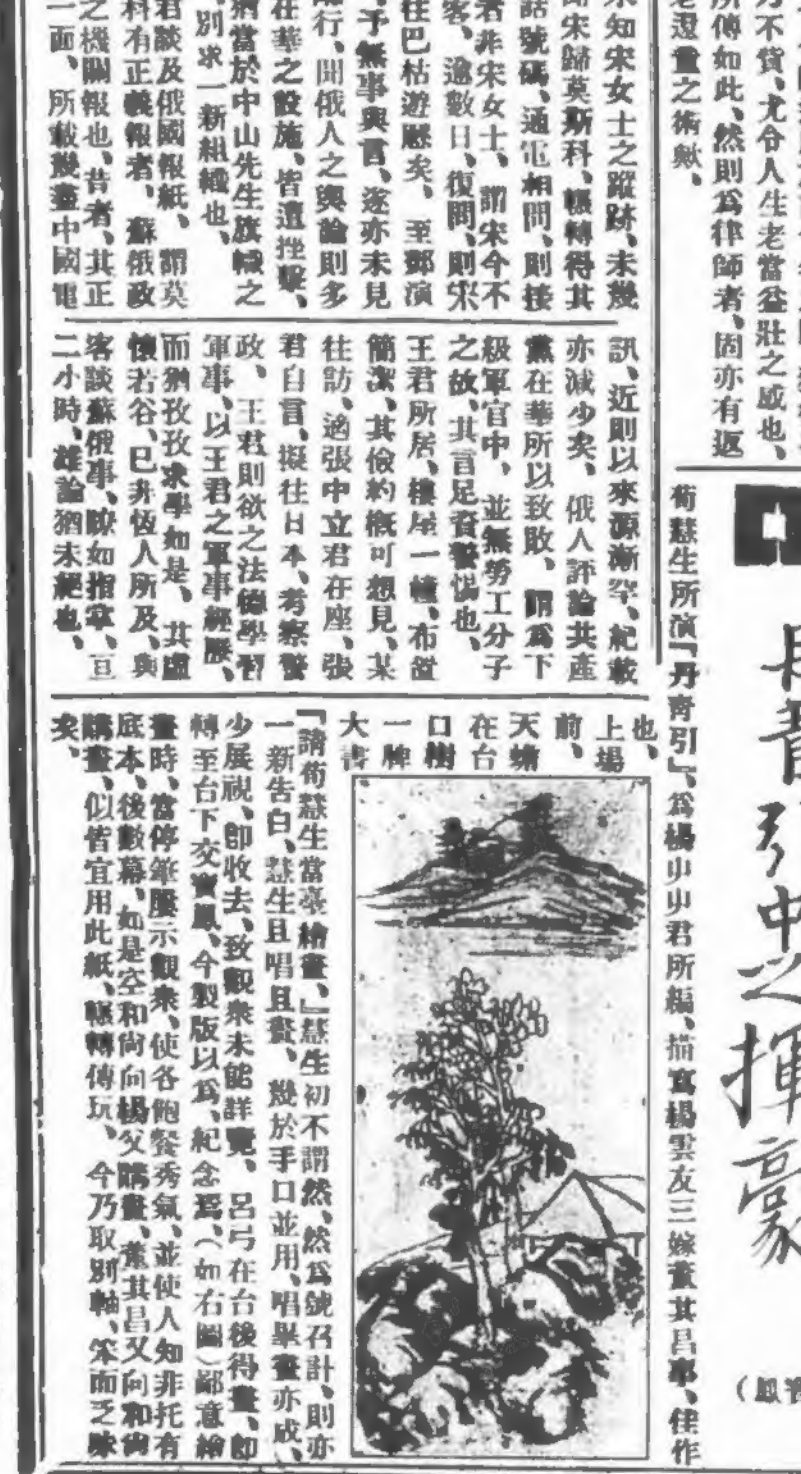 乃不貸、尤合人生老當益壯之感也、
所傳如此、然則爲律師者、固亦有返
老還童之術歟、
未知宋女士之蹤跡、未幾
宋歸莫斯科、輾轉得其
話號碼、通電相問、則接
者非宋女士、謂宋今不
客、逾數日、復問、則宋
往巴枯遊歷矣、至鄧演
予無事與言、遂亦未見
行、聞俄人之輿論則多
在華之設施、皆遭挫擊、
猶當於中山先生旗幟之
別求一新組織也、
君談及俄國報紙、謂莫
科有正義報者、蘇俄政
之機關報也、昔者、其正
一面、所載幾盡中國電
訊、近則以來源漸罕、紀載
亦減少矣、俄人評論共產
黨在華所以致敗、謂爲下
級軍官中、並無勞工分子
之故、其言足資警惕也、
王君所居、樓屋一幢、布置
簡潔、其儉約概可想見、某
往訪、適張中立君在座、張
君自言、擬往日本、考察警
政、王君則欲之法德學習
軍事、以王君之軍事經歷、
而猶孜孜求學如是、其虛
懷若谷、已非恆人所及、與
客談蘇俄事、瞭如指掌、亘
二小時、雄論猶未絕也、
丹青引中之揮豪
荀慧生所演『丹青引』、爲楊丱丱君所編、描寫楊雲友三嫁董其昌事、佳作
也、
上場
前、
天蟾
在台
口樹
一牌
大書
『請荀慧生當塲繪畫、』慧生初不謂然、然爲號召計、則亦
一新告白、慧生且唱且畫、幾於手口並用、唱畢畫亦成、
少展視、卽收去、致觀衆未能詳覽、呂弓在台後得畫、卽
轉至台下交寶鳳、今製版以爲、紀念焉、(如右圖)鄙意繪
畫時、當停筆展示觀衆、使各飽餐秀氣、並使人知非托有
底本、後數幕、如是空和尙向楊父購畫、董其昌又向和尙
購畫、似皆宜用此紙、輾轉傳玩、今乃取別軸、笨而乏味
矣、